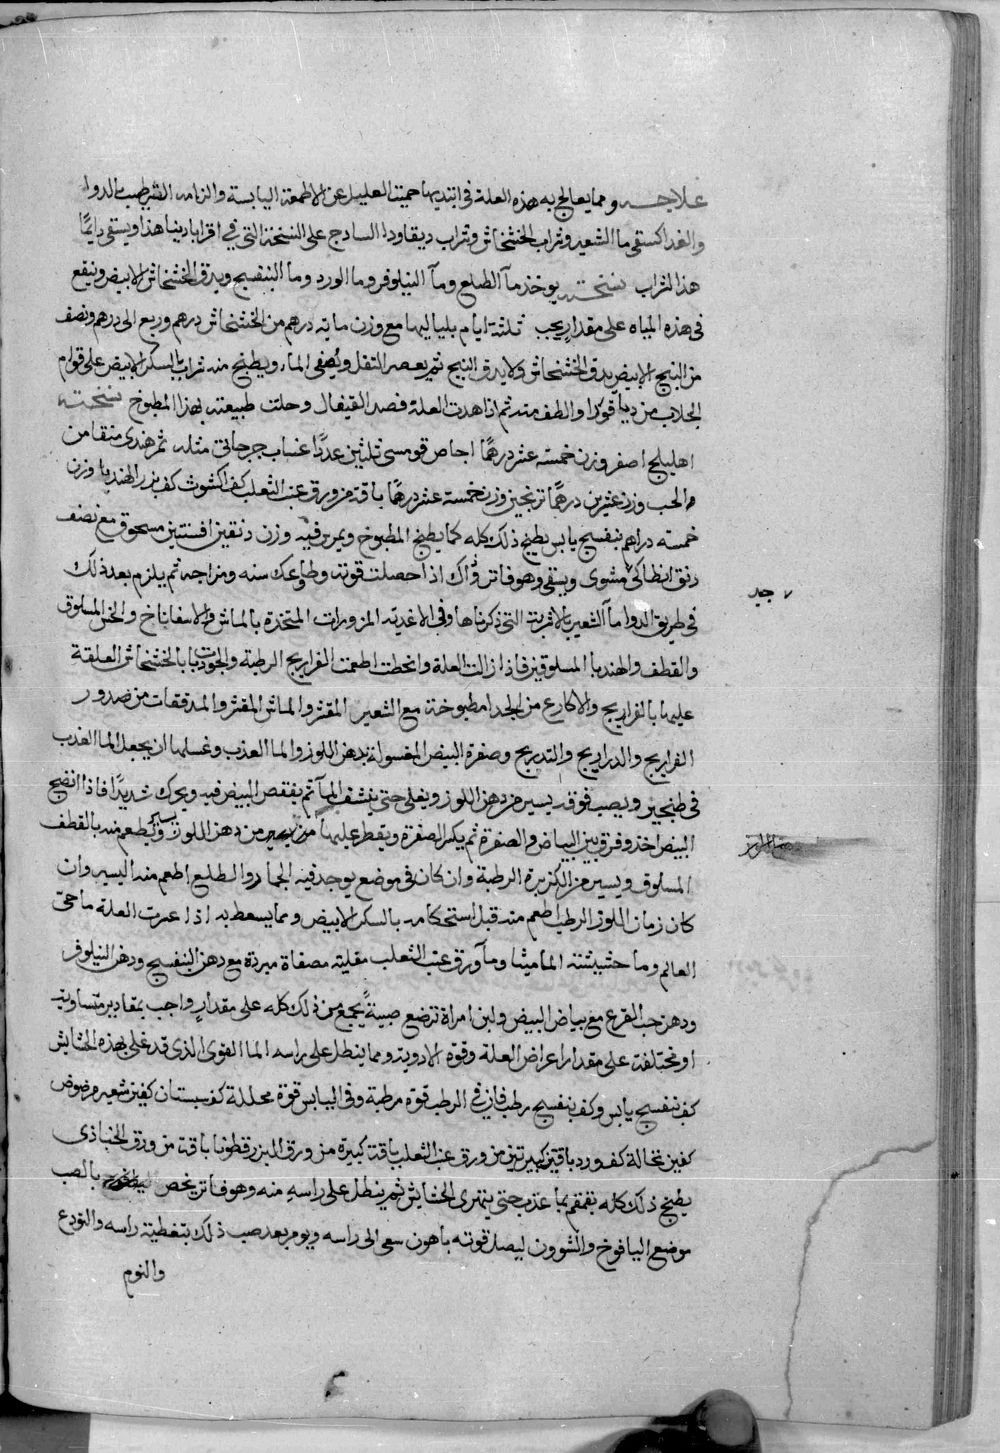 علاجه ومما يعالج به هذه العلة في ابتديها حمية العليل عن الاطمعة اليابسة والزامه الترطيب بالدوا
والغدا كسقي ما الشعير وشراب الخشخاش وشراب ديقاودا السادج على النسخة التي في اقرابادينا هذا ويسقى دايمًا
هذا الشراب نسخته يوخذ مآ الطلع ومآ النيلوفر وما الورد وما البنفسج ويدق الخشخاش الابيض وينقع
في هذه المياه على مقدار يجب ثلثة ايام بلياليها مع وزن مايه درهم من الخشخاش درهم وربع الى درهم ونصف
من البنج الابيض يدق الخشخاش ولا يدق البنج ثم يعصر الثفل ويصفى الماء ويطبخ منه شراب بالسكر الابيض على قوام
الجلاب من دياقودا والطف منه ثم اذا هدت العلة فصد القيفال وحلت طبيعته بهذا المطبوخ نسخته
اهليلج اصفر وزن خمسة عشر درهمًا اجاص قومسى ثلثين عددًا عناب جرجاني مثله تمر هندى منقا من
الحب وزن عشرين درهمًا ترنجبين وزن خمسة عشر درهمًا باقة من ورق عنب الثعلب كف اكشوث كف بزر الهندبا وزن
خمسة دراهم بنفسج يابس يطبخ ذلك كله كما يطبخ المطبوخ ويمرس فيه وزن دنقين افسنتين مسحوق مع نصف
دنق انطاكى مشوى ويسقى وهو فاتر وذاك اذا حصلت قوته وطاوعك سنه ومزاجه ثم يلزم بعد ذلك
في طريق الدوا مآ الشعير بالاشربة التي ذكرناها وفي الاغدية المزورات المتخدة بالماش والاسفاناخ والخس المسلوق
والقطف والهندبا المسلوقين فاذا زالت العلة وانحطت اطعمت الفراريج الرطبة والجوذابات بالخشخاش العلقة
عليها بالفراريج والاكارع من الجدا مطبوخة مع الشعير المقشر والماش المقشر والمدققات من صدور
الفراريج والدراريج والتدريج وصفرة البيض المغسولة بدهن اللوز والما العذب وغسلها ان يجعل الما العذب
في طنجير ويصب فوقه يسير من دهن اللوز ويغلى حتى ينشف المآ ثم يفقص البيض فيه ويحرك شديدًا فاذا انضج
البيض اخذ وفرق بين البياض والصفرة ثم يكسر الصفرة ويقطر عليها يسير من دهن اللوز ويطعم منه بالقطف
المسلوق ويسير من الكزبرة الرطبة وان كان في موضع يوجد فيه الجمار والطلع اطعم منه اليسير وان
كان زمان اللوز الرطب اطعم منه قبل استحكامه بالسكر الابيض ومما يسعط به اذا عبرت العلة ما حى
العالم وما حشيشة الماميثا ومآ ورق عنب الثعلب مقلية مصفاة مبردة مع دهن البنفسج ودهن النيلوفر
ودهن حب القرع مع بياض البيض ولبن امراة ترضع صبية يجمع من ذلك كله على مقدار واجب بمقادير متساوية
او مختلفة على مقدار اعراض العلة وقوة الادوية ومما ينطل على راسه الما القوى الذى قد غلى بهذه الحشايش
كف بنفسج يابس وكف بنفسج رطب فان في الرطب قوة مرطبة وفى اليابس قوة محللة كف سبستان كفين شعير مرضوض
كفين نخالة كف ورد باقتين كبيرتين من ورق عنب الثعلب باقة كبيرة من ورق البزرقطونا باقة من ورق الخبازى
يطبخ ذلك كله بقمقم بما عذب حتى يتهرى الحشايش ثم ينطل على راسه منه وهو فاتر يخص بالصب
موضع اليافوخ والشوون ليصل قوته باهون سعى الى راسه ويومر بعد صب ذلك بتغطية راسه والتودع
والنوم
جيد